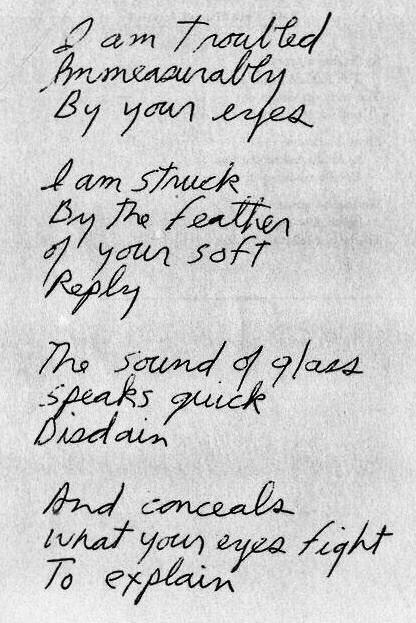 I am Troubled
Immeasurably
By your eyes
I am struck
By The feather
of your soft
Reply
The sound of glass
speaks quick
Disdain
And conceals
what your eyes fight
To explain